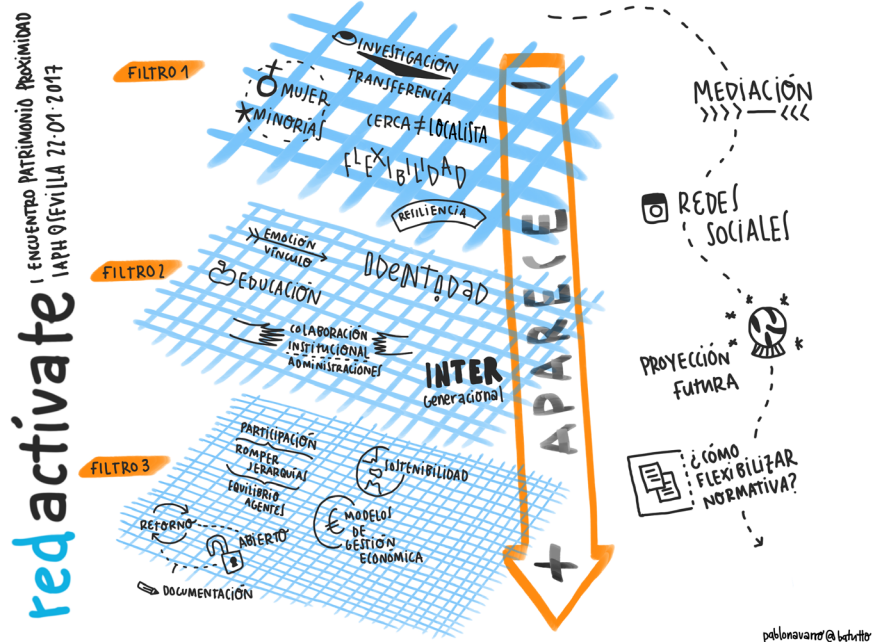 redactívate
I ENCUENTRO PATRIMONIO PROXIMIDAD
IAPH SEVILLA 22·01·2017
FILTRO 1
INVESTIGACIÓN
TRANSFERENCIA
MUJER
MINORÍAS
CERCA ≠ LOCALISTA
FLEXIBILIDAD
RESILIENCIA
FILTRO 2
EMOCIÓN
VÍNCULO
IDENTIDAD
EDUCACIÓN
COLABORACIÓN
INSTITUCIONAL
ADMINISTRACIONES
INTER
Generacional
FILTRO 3
PARTICIPACIÓN
ROMPER
JERARQUÍAS
EQUILIBRIO
AGENTES
SOSTENIBILIDAD
RETORNO
ABIERTO
€ MODELOS
DE
GESTIÓN
ECONÓMICA
DOCUMENTACIÓN
-
APARECE
+
MEDIACIÓN
REDES
SOCIALES
PROYECCIÓN
FUTURA
¿CÓMO
FLEXIBILIZAR
NORMATIVA?